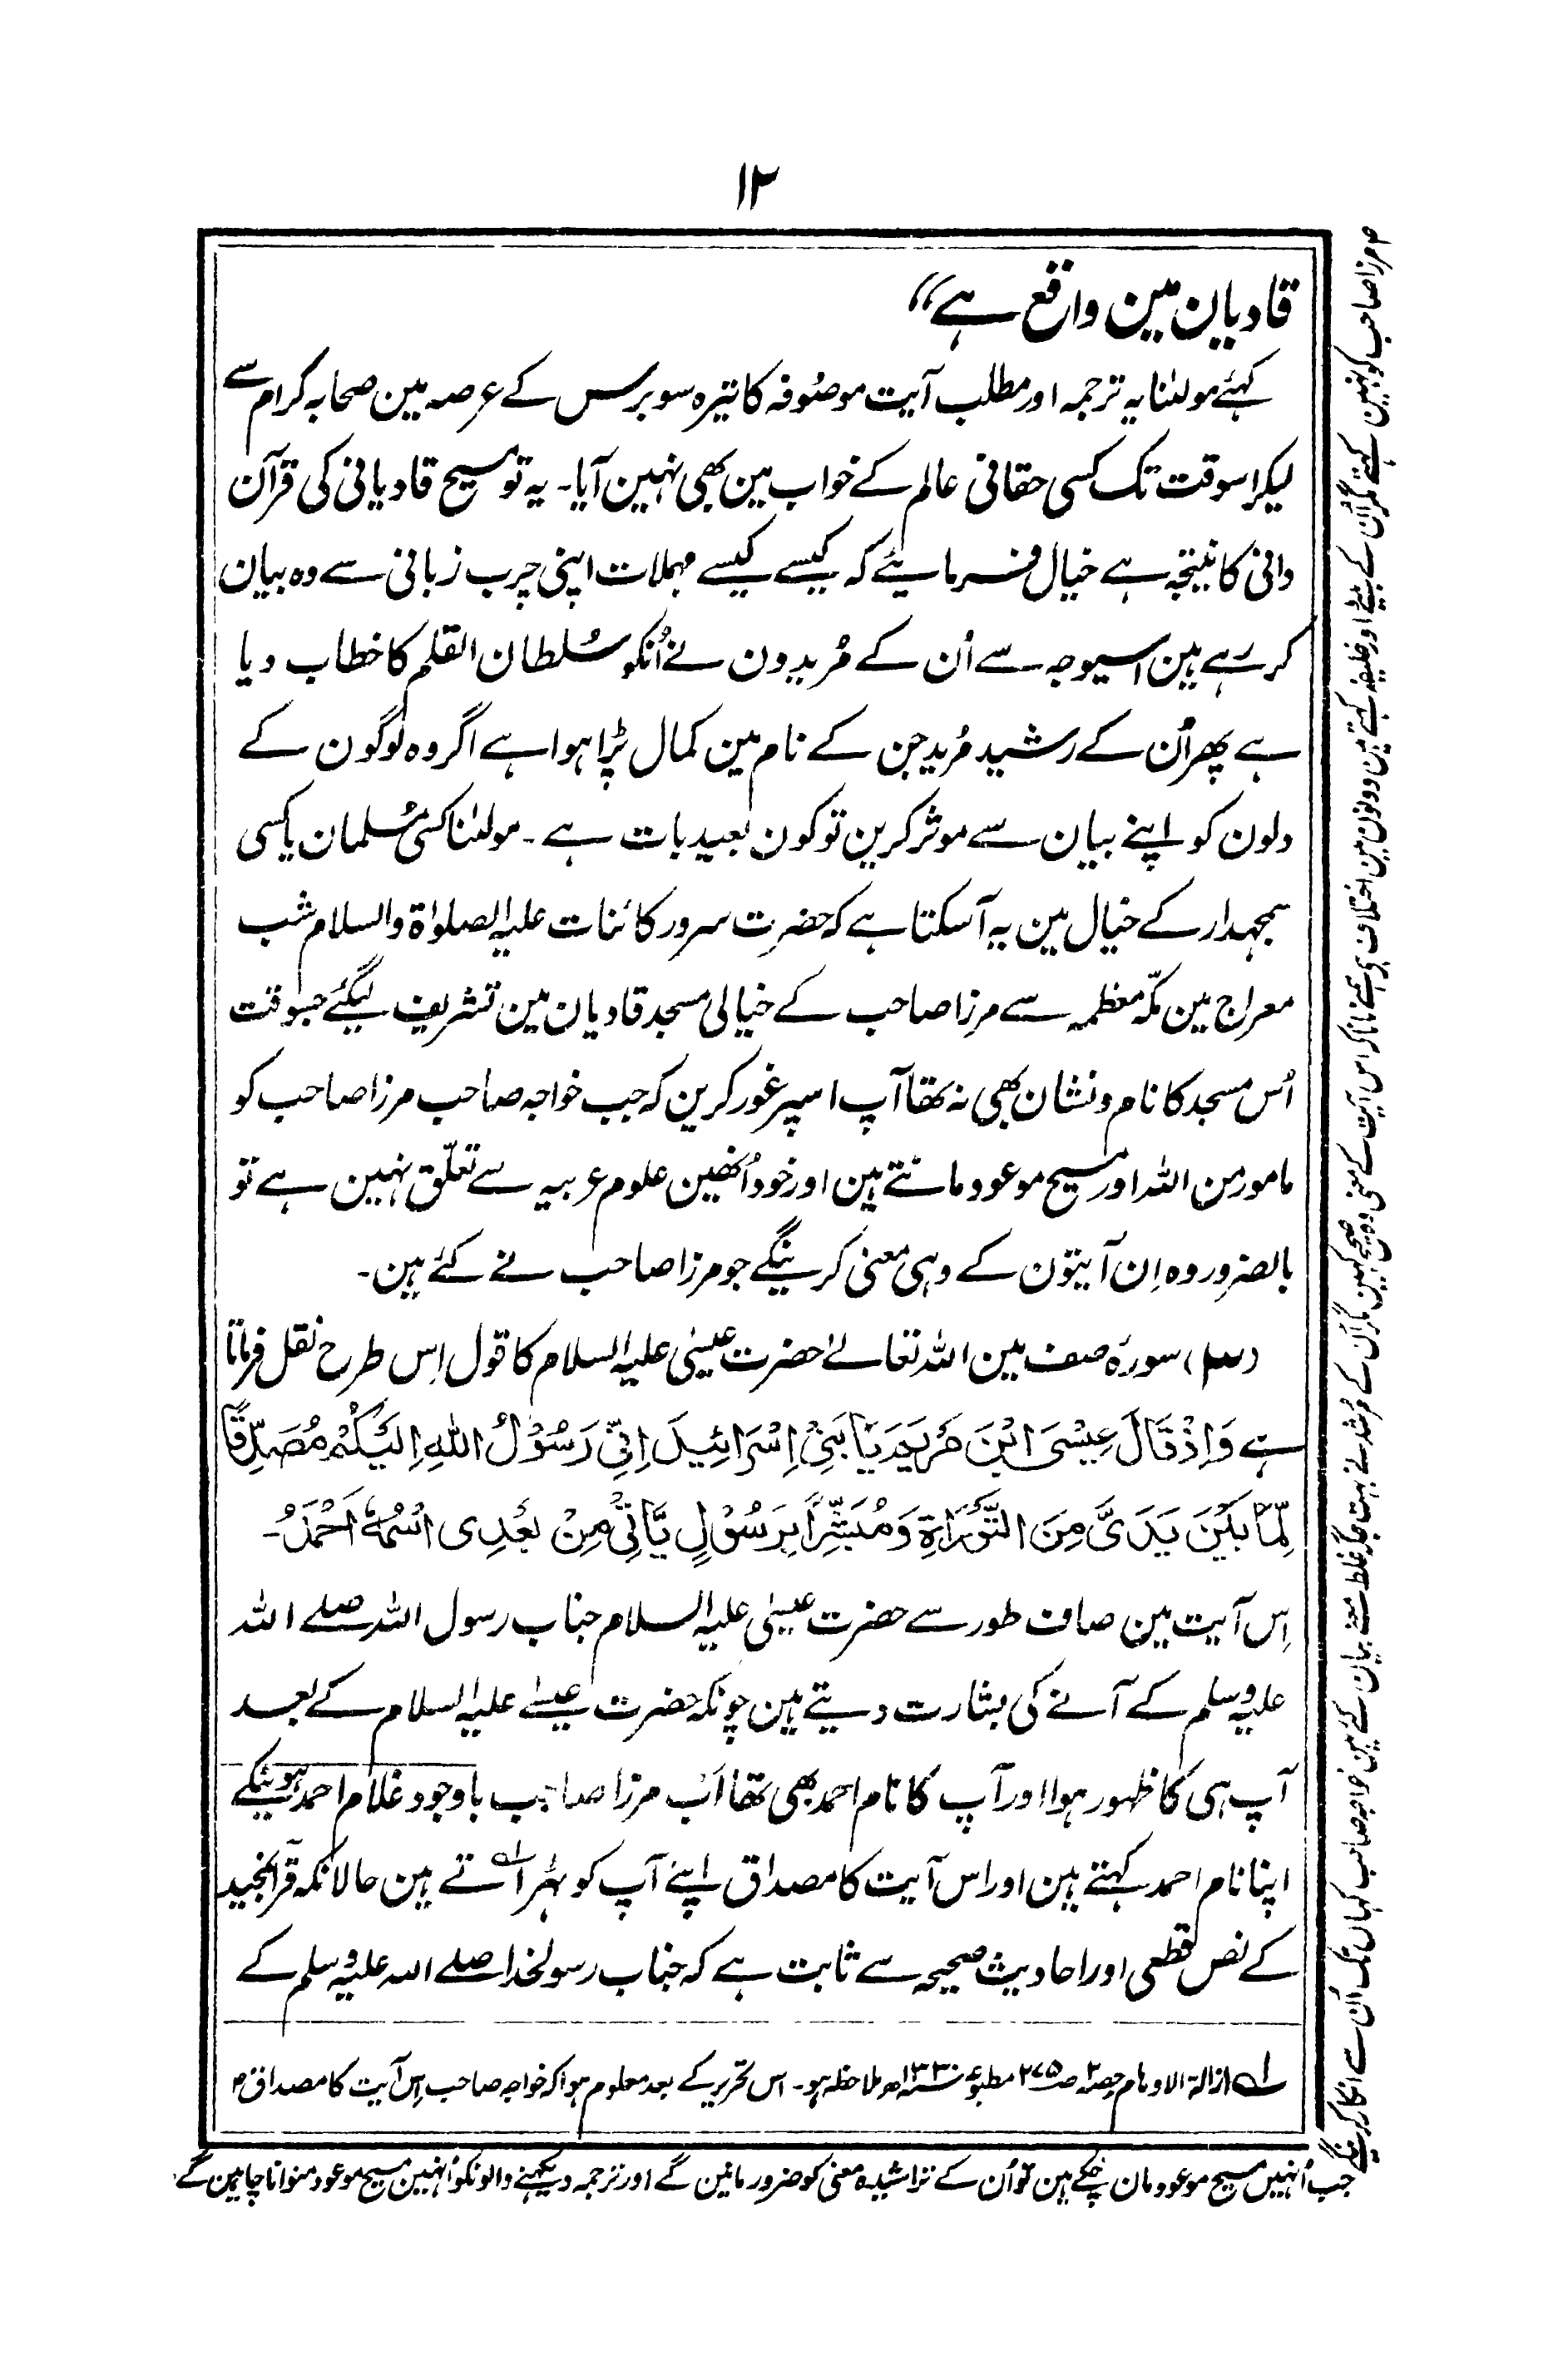 ۱۲
قادیان مین واقع ہے‘‘
کہئے مولٰنا یہ ترجمہ اور مطلب آیت موصُوفہ کا تیرہ سو برس کے عرصہ مین صحابہ کرام سے
لیکر اسوقت تک کسی حقانی عالم کے خواب مین بھی نہین آیا۔ یہ تو مسیح قادیانی کی قرآن
دانی کا نتیجہ ہے خیال فرمایئے کہ کیسے کیسے مہملات اپنی چرب زبانی سے وہ بیان
کر رہے ہین اسیوجہ سے اُن کے مُریدون نے اُنکو سُلطان القلم کا خطاب دیا
ہے پھر اُن کے رشید مُرید جن کے نام مین کمال پڑا ہوا ہے اگر وہ لوگون کے
دلون کو اپنے بیان سے موثر کرین تو کون بعید بات ہے۔ مولٰنا کسی مُسلمان یا کسی
سمجہدار کے خیال مین یہ آسکتا ہے کہ حضرت سرور کائنات علیہ الصلوٰۃ والسلام شب
معراج مین مکّہ معظمہ سے مرزا صاحب کے خیالی مسجد قادیان مین تشریف لیگئے جسوقت
اُس مسجد کا نام و نشان بھی نہ تھا آپ اسپر غور کرین کہ جب خواجہ صاحب مرزا صاحب کو
مامور من اللہ اور مسیح موعود مانتے ہین اور خود اُنھین علوم عربیہ سے تعلّق نہین ہے تو
بالضرور وہ اِن آیتون کے وہی معنی کرینگے جو مرزا صاحب نے کئے ہین۔
(۳) سورۂ صف مین اللہ تعالےٰ حضرت عیسٰی علیہ السلام کا قول اِس طرح نقل فرماتا
ہے وَاِذْ قَالَ عِیْسَی ابْنَ مَرْیَمَ یَا بَنِیْ اِسْرَائِیلَ اِنِّی رَسُوْلُ اللهِ اِلَیْکُمْ مُصَدِّقًا
لِّمَا بَیْنَ یَدَیَّ مِنَ التَّوْرَاةِ وَمُبَشِّرًا بِرَسُوْلٍ یَّاتِیْ مِنْ بَعْدِی اسْمُهٗ اَحْمَدُ۔
اِس آیت مین صاف طور سے حضرت عیسٰی علیہ السلام جناب رسول اللہ صلے اللہ
علیہ وسلم کے آنے کی بشارت دیتے ہین چونکہ حضرت عیسےٰ علیہ السلام کے بعد
آپ ہی کا ظہور ہوا اور آپ کا نام احمد بھی تھا اَب مرزا صاحب باوجود غلام احمد ہونیکے
اپنا نام احمد کہتے ہین اور اس آیت کا مصداق اپنے آپ کو ٹہرا۱؎تے ہین حالانکہ قرآنمجید
کے نص قطعی اور احادیث صحیحہ سے ثابت ہے کہ جناب رسولخدا صلے اللہ علیہ وسلم کے
۱؎ ازالة الاوہام حصہ ۲ صـ ۲۷۵ مطبوعہ سنہ ۱۳۳۰ھ ملاحظہ ہو۔ اس تحریر کے بعد معلوم ہوا کہ خواجہ صاحب اِس آیت کا مصداق ۳
۳ مرزا صاحب کو نہین کہتے مگر اُن کے بیٹے اور خلیفہ کہتے ہین دونون مین اختلاف ہے ہمنے مانا کہ اس آیت کے معنی وہ صحیح کہین مگر اُن کے مُرشد نے بہت جگہ غلط معنے بیان کئے ہین خواجہ صاحب کہاں تک اُن سے انکار کرینگے
جب اُنہیں مسیح موعود مان چکے ہین تو اُن کے تراشیدہ معنی کو ضرور مانین گے اور ترجمہ دیکہنے والونکو اُنہین مسیح موعود منوانا چاہین گے۔